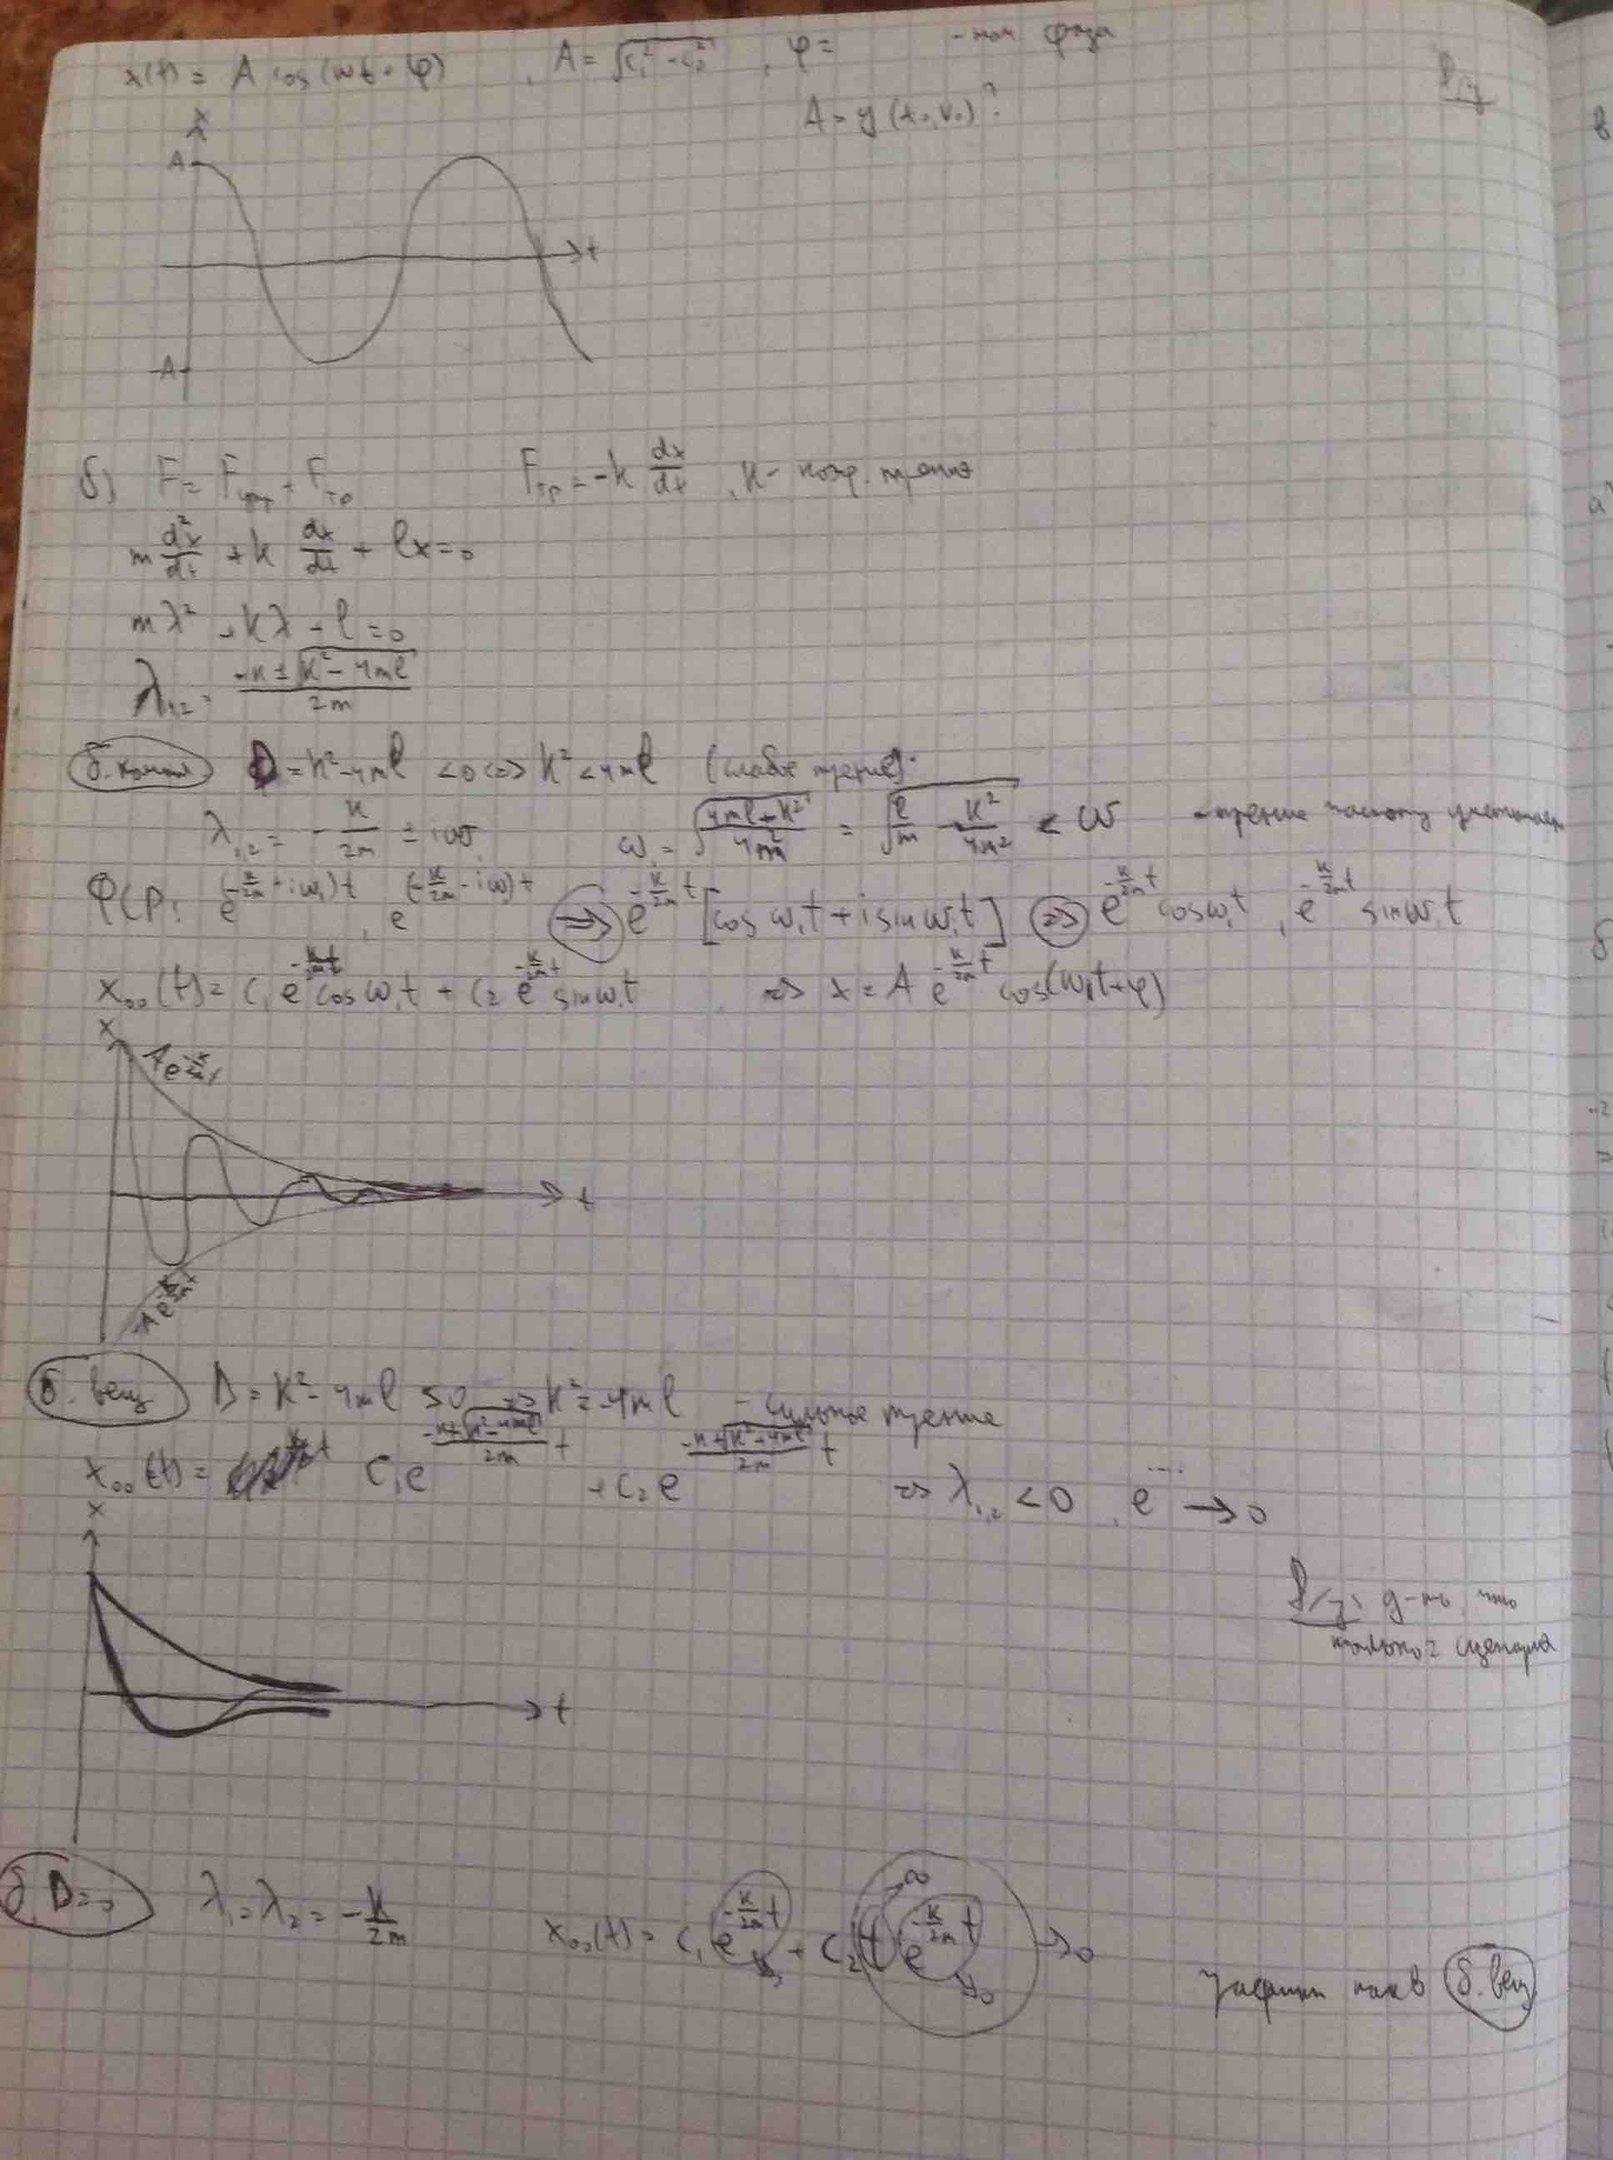 x(t) = A cos(ωt + φ) , A = √(c₁² - c₂²) , φ = - нач фаза
A = y (x₀, v₀) ?
Д/з
x
A
t
-A
б) F = Fупр + Fтр Fтр = -k dx/dt , k - коэф. трения
m d²x/dt + k dx/dt + lx = 0
mλ² + kλ - l = 0
λ₁,₂ = (-k ± √(k² - 4ml))/2m
б. компл D = k² - 4ml < 0 <=> k² < 4ml (слабое трение).
λ₁,₂ = -k/2m ± iω₁ ω₁ = √((4ml - k²)/4m²) = √(l/m - k²/4m²) < ω - трение частоту уменьшает
ФСР: e^((-k/2m + iω₁)t) , e^((-k/2m - iω)t) => e^(-k/2m t) [cos ω₁t + i sin ω₁t] => e^(-k/2m t) cos ω₁t , e^(-k/2m t) sin ω₁t
x₀₀(t) = c₁ e^(-k/2m t) cos ω₁t + c₂ e^(-k/2m t) sin ω₁t => x = A e^(-k/2m t) cos(ω₁t + φ)
x
A e^(-k/2m t)
t
-A e^(-k/2m t)
б. вещ D = k² - 4ml > 0 => k² > 4ml - сильное трение
x₀₀(t) = c₁ e^((-k + √(k² - 4ml))/2m t) + c₂ e^((-k - √(k² - 4ml))/2m t) => λ₁,₂ < 0 , e^... → 0
x
t
Д/з: д-ть, что
только 2 сценария
б. D = 0 λ₁ = λ₂ = -k/2m x₀₀(t) = c₁ e^(-k/2m t) → 0 + c₂ t → ∞ e^(-k/2m t) → 0 → 0
график как в б. вещ